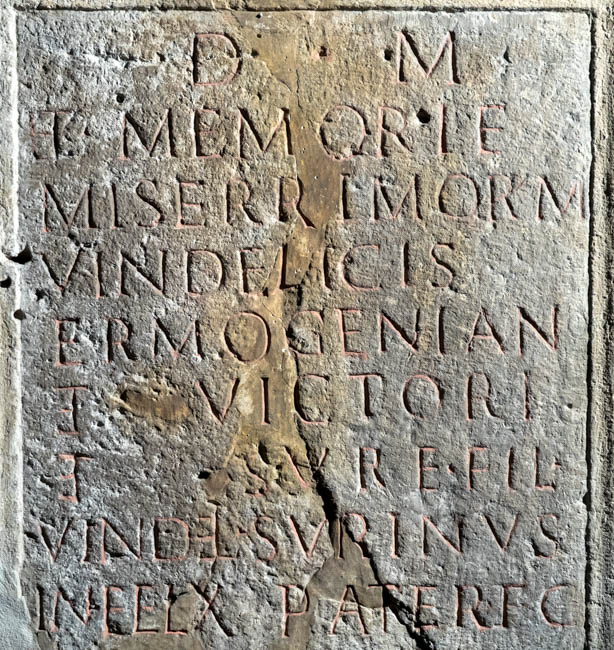 D · M
ET · MEMORIE
MISERRIMORVM
VINDELICIS
ERMOGENIAN
ET VICTORI
ET SVRE · FIL ·
VINDEL · SVRINVS
INFELX PATER F C